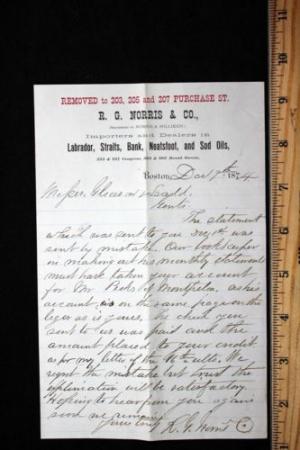 REMOVED to 203, 205 and 207 PURCHASE ST.
R. G. NORRIS & CO.,
Importers and Dealers in
Labrador, Straits, Bank, Neatsfoot, and Sod Oils,
Boston, Dec 7th 1874
Messr Gleason & Ladd
Gents
The statement
which was sent to you was
sent by mistake. Our book keeper
in making out his monthly statements
must have taken your account
for Mr of Montpelier, as his
account is on the same page on the
leger as is yours, the check you
sent to us was paid and the
amount placed to your credit
as per my letter of the 11th ulto. We
regret the mistake but trust the
explination will be satisfactory.
Hoping to hear from you again
soon we remain
Yours truly R. G. Norris & Co
1
2
3
4
5
6
7
8
9
10
11